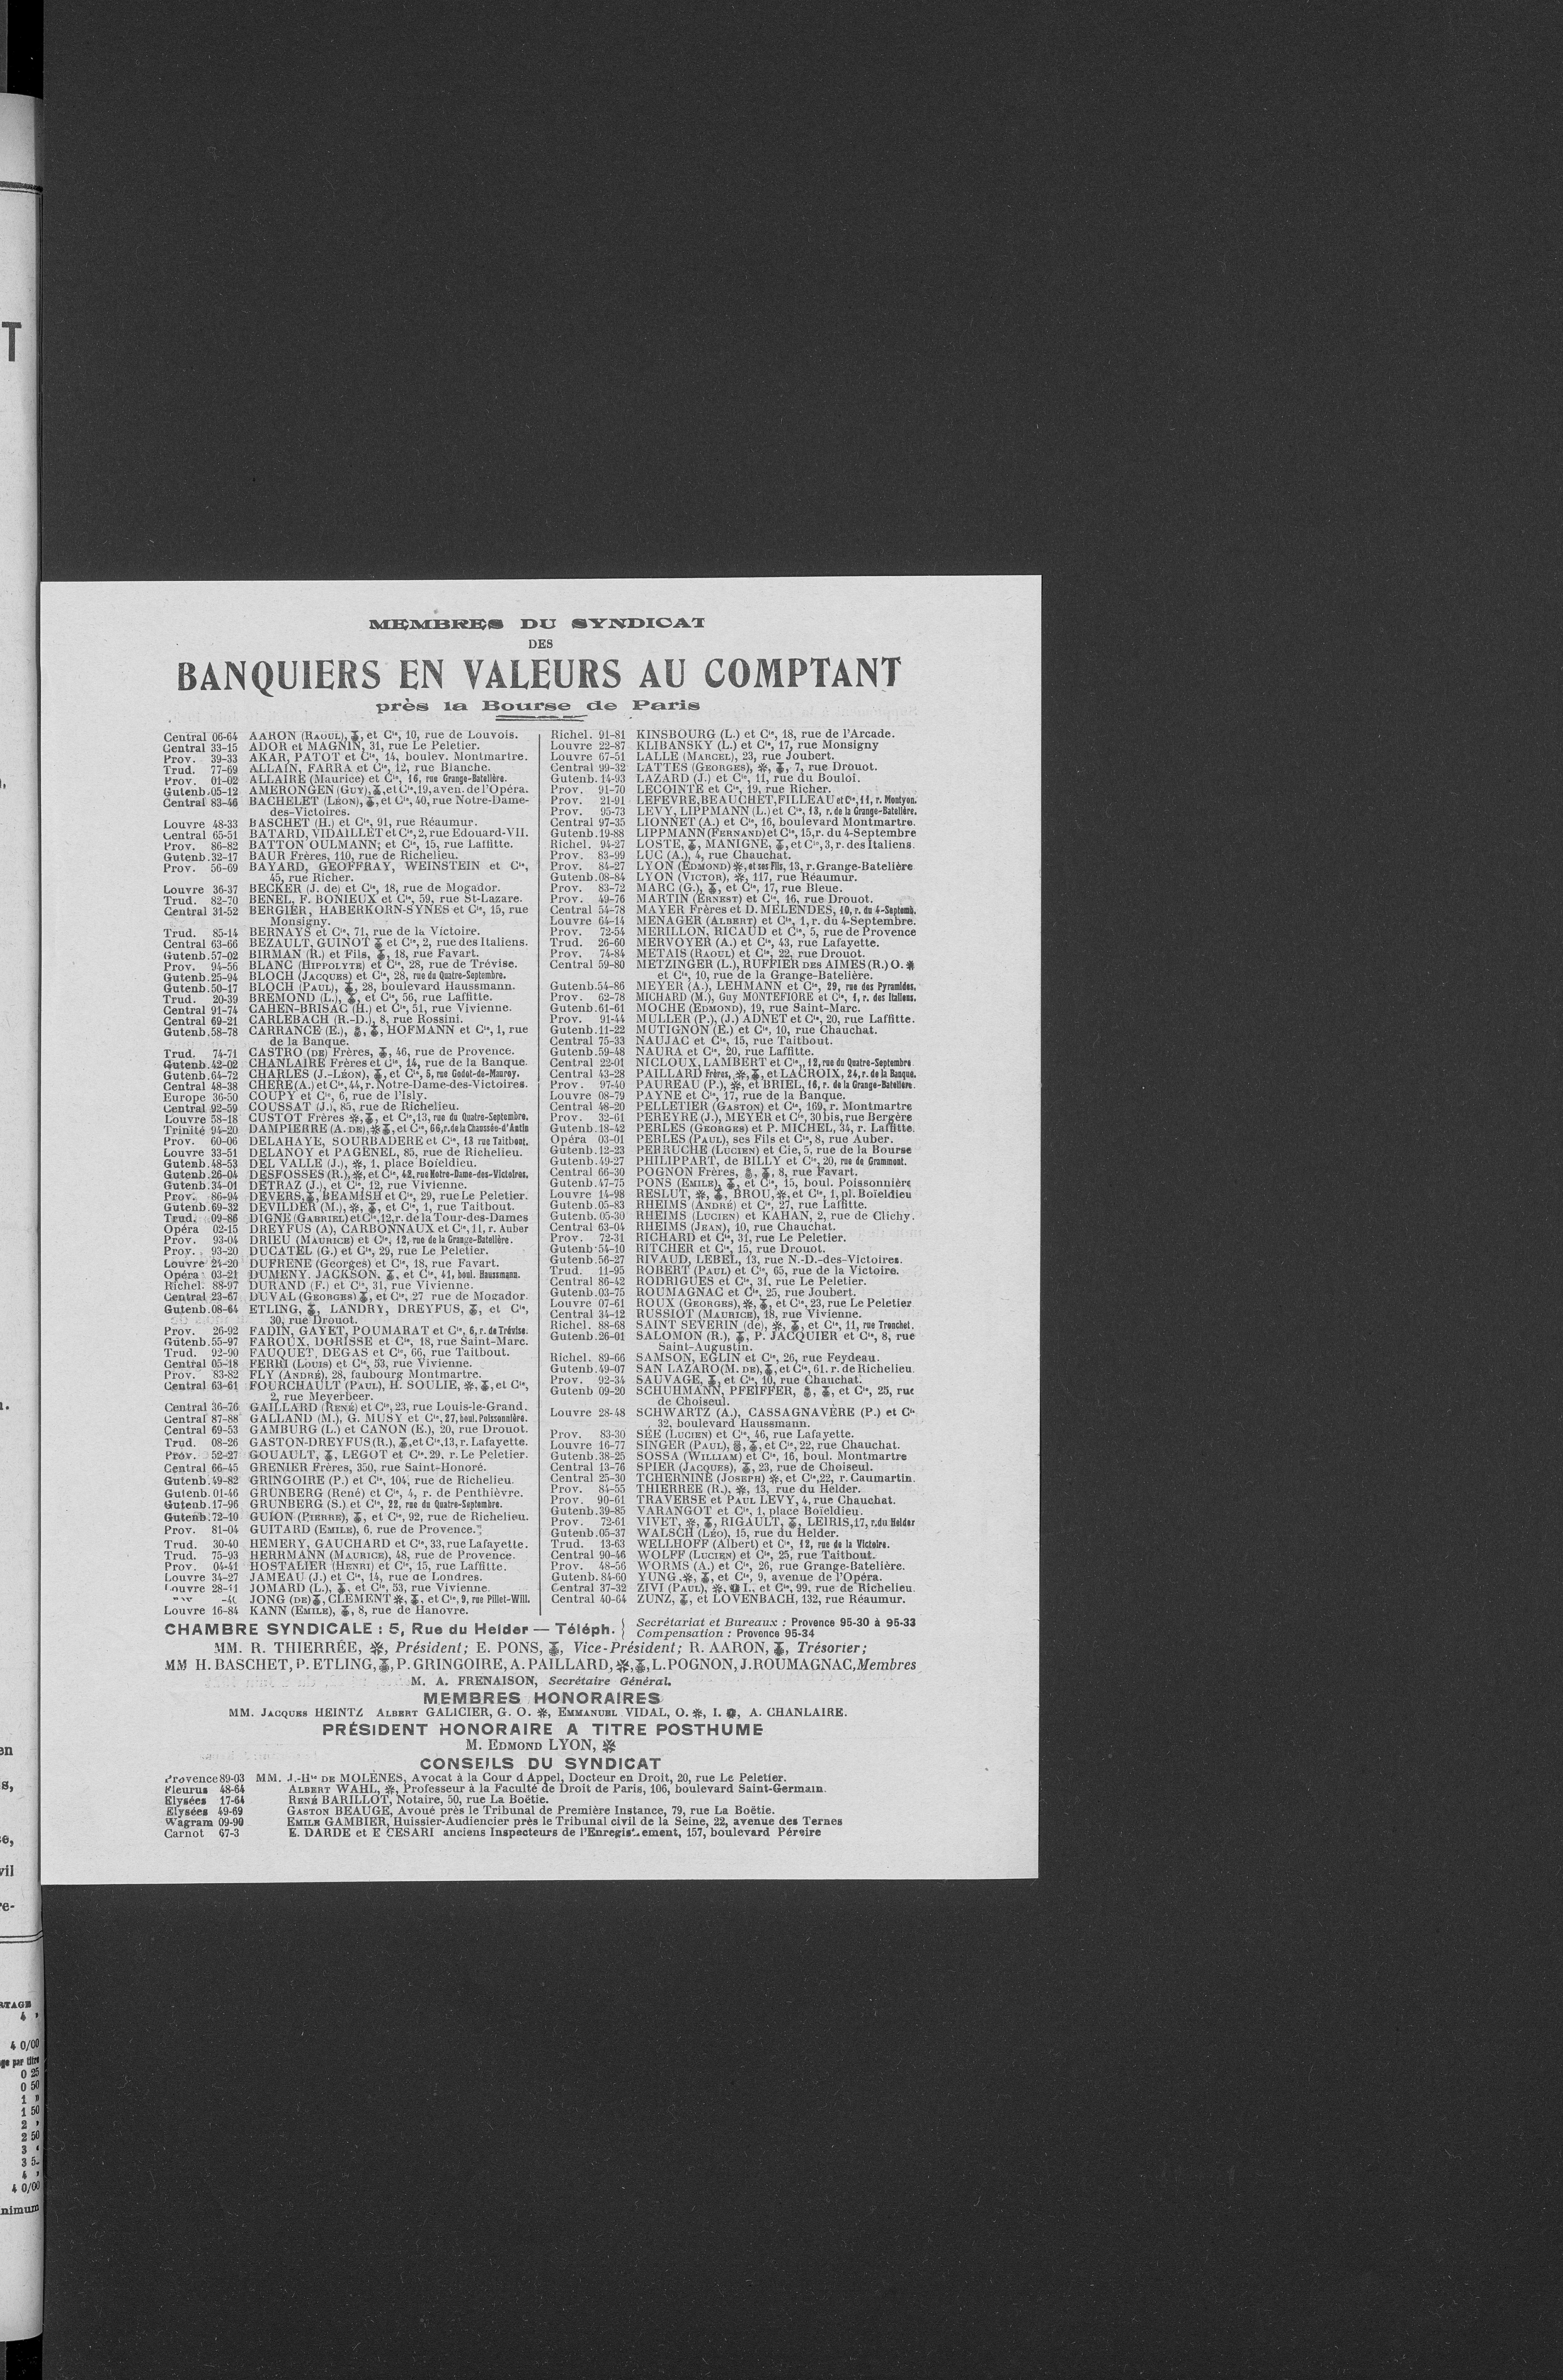 MEMBRES DU SYNDICAT
DES
BANQUIERS EN VALEURS AU COMPTANT
près la Bourse de Paris
Central 06-64 AARON (RAOUL), et Cie, 10, rue de Louvois.
Central 33-15 ADOR et MAGNIN, 31, rue Le Peletier.
Prov. 39-33 AKAR, PATOT et Cie, 14, boulev. Montmartre.
Trud. 77-69 ALLAIN, FARRA et Cie, 12, rue Blanche.
Prov. 01-02 ALLAIRE (Maurice) et Cie, 16, rue Grange-Batelière.
Gutenb. 05-12 AMERONGEN (GUY), et Cie, 19, aven. de l'Opéra.
Central 83-46 BACHELET (LÉON), et Cie, 40, rue Notre-Dame-
des-Victoires.
Louvre 48-33 BASCHET (H.) et Cie, 91, rue Réaumur.
Central 65-51 BATARD, VIDAILLET et Cie, 2, rue Edouard-VII.
Prov. 86-82 BATTON OULMANN; et Cie, 15, rue Laffitte.
Gutenb. 32-17 BAUR Frères, 110, rue de Richelieu.
Prov. 56-69 BAYARD, GEOFFRAY, WEINSTEIN et Cie,
45, rue Richer.
Louvre 36-37 BECKER (J. de) et Cie, 18, rue de Mogador.
Trud. 82-70 BENEL, F. BONIEUX et Cie, 59, rue St-Lazare.
Central 31-52 BERGIER, HABERKORN-SYNES et Cie, 15, rue
Monsigny.
Trud. 85-14 BERNAYS et Cie, 71, rue de la Victoire.
Central 63-66 BEZAULT, GUINOT et Cie, 2, rue des Italiens.
Gutenb. 57-02 BIRMAN (R.) et Fils, 18, rue Favart.
Prov. 94-56 BLANC (HIPPOLYTE) et Cie, 28, rue de Trévise.
Gutenb. 25-94 BLOCH (JACQUES) et Cie, 28, rue du Quatre-Septembre.
Gutenb. 50-17 BLOCH (PAUL), 28, boulevard Haussmann.
Trud. 20-39 BREMOND (L.), et Cie, 56, rue Laffitte.
Central 91-74 CAHEN-BRISAC (H.) et Cie, 51, rue Vivienne.
Central 69-21 CARLEBACH (R.-D.), 8, rue Rossini.
Gutenb. 58-78 CARRANCE (E.), HOFMANN et Cie, 1, rue
de la Banque.
Trud. 74-71 CASTRO (DE) Frères, 46, rue de Provence.
Gutenb. 42-02 CHANLAIRE Frères et Cie, 14, rue de la Banque.
Gutenb. 64-72 CHARLES (J.-LÉON), et Cie, 5, rue Godot-de-Mauroy.
Central 48-38 CHERE (A.) et Cie, 44, r. Notre-Dame-des-Victoires.
Europe 36-50 COUPY et Cie, 6, rue de l'Isly.
Central 92-59 COUSSAT (J.), 85, rue de Richelieu.
Louvre 58-18 CUSTOT Frères, et Cie, 13, rue du Quatre-Septembre.
Trinité 94-20 DAMPIERRE (A. DE), et Cie, 66, r. de la Chaussée-d'Antin
Prov. 60-06 DELAHAYE, SOURBADERE et Cie, 13 rue Taitbout.
Louvre 33-51 DELANOY et PAGENEL, 85, rue de Richelieu.
Gutenb. 48-53 DEL VALLE (J.), 1, place Boïeldieu.
Gutenb. 26-04 DESFOSSES (R.), et Cie, 42, rue Notre-Dame-des-Victoires,
Gutenb. 34-01 DETRAZ (J.), et Cie, 12, rue Vivienne.
Prov. 86-94 DEVERS, BEAMISH et Cie, 29, rue Le Peletier.
Gutenb. 69-32 DEVILDER (M.), et Cie, 1, rue Taitbout.
Trud. 09-86 DIGNE (GABRIEL) et Cie, 12, r. de la Tour-des-Dames
Opéra 02-15 DREYFUS (A), CARBONNAUX et Cie, 11, r. Auber
Prov. 93-04 DRIEU (MAURICE) et Cie, 12, rue de la Grange-Batelière.
Prov. 93-20 DUCATEL (G.) et Cie, 29, rue Le Peletier.
Louvre 24-20 DUFRENE (Georges) et Cie, 18, rue Favart.
Opéra 03-21 DUMENY. JACKSON, et Cie, 41, boul. Haussmann.
Richel. 88-97 DURAND (F.) et Cie, 31, rue Vivienne.
Central 23-67 DUVAL (GEORGES), et Cie, 27 rue de Mogador.
Gutenb. 08-64 ETLING, LANDRY, DREYFUS, et Cie,
30, rue Drouot.
Prov. 26-92 FADIN, GAYET, POUMARAT et Cie, 6, r. de Trévise.
Gutenb. 55-97 FAROUX, DORISSE et Cie, 18, rue Saint-Marc.
Trud. 92-90 FAUQUET, DEGAS et Cie, 66, rue Taitbout.
Central 05-18 FERRI (LOUIS) et Cie, 53, rue Vivienne.
Prov. 83-82 FLY (ANDRÉ), 28, faubourg Montmartre.
Central 63-61 FOURCHAULT (PAUL), H. SOULIE, et Cie,
2, rue Meyerbeer.
Central 36-76 GAILLARD (RENÉ) et Cie, 23, rue Louis-le-Grand.
Central 87-88 GALLAND (M.), G. MUSY et Cie, 27, boul. Poissonnière.
Central 69-53 GAMBURG (L.) et CANON (E.), 20, rue Drouot.
Trud. 08-26 GASTON-DREYFUS (R.), et Cie, 13, r. Lafayette.
Prov. 52-27 GOUAULT, LEGOT et Cie. 29, r. Le Peletier.
Central 66-45 GRENIER Frères, 350, rue Saint-Honoré.
Gutenb. 49-82 GRINGOIRE (P.) et Cie, 104, rue de Richelieu.
Gutenb. 01-46 GRUNBERG (René) et Cie, 4, r. de Penthièvre.
Gutenb. 17-96 GRUNBERG (S.) et Cie, 22, rue du Quatre-Septembre.
Gutenb. 72-10 GUION (PIERRE), et Cie, 92, rue de Richelieu.
Prov. 81-04 GUITARD (EMILE), 6, rue de Provence.
Trud. 30-40 HEMERY, GAUCHARD et Cie, 33, rue Lafayette.
Trud. 75-93 HERRMANN (MAURICE), 48, rue de Provence.
Prov. 04-41 HOSTALIER (HENRI) et Cie, 15, rue Laffitte.
Louvre 34-27 JAMEAU (J.) et Cie, 14, rue de Londres.
Louvre 28-11 JOMARD (L.), et Cie, 53, rue Vivienne.
JONG (DE), CLEMENT, et Cie, 9, rue Pillet-Will.
Louvre 16-84 KANN (EMILE), 8, rue de Hanovre.
Richel. 91-81 KINSBOURG (L.) et Cie, 18, rue de l'Arcade.
Louvre 22-87 KLIBANSKY (L.) et Cie, 17, rue Monsigny
Louvre 67-51 LALLE (MARCEL), 23, rue Joubert.
Central 99-32 LATTES (GEORGES), 7, rue Drouot.
Gutenb. 14-93 LAZARD (J.) et Cie, 11, rue du Bouloi.
Prov. 91-70 LECOINTE et Cie, 19, rue Richer.
Prov. 21-91 LEFEVRE, BEAUCHET, FILLEAU et Cie, 11, r. Montyon.
Prov. 95-73 LEVY, LIPPMANN (L.) et Cie, 13, r. de la Grange-Batelière.
Central 97-35 LIONNET (A.) et Cie, 16, boulevard Montmartre.
Gutenb. 19-88 LIPPMANN (FERNAND) et Cie, 15, r. du 4-Septembre
Richel. 94-27 LOSTE, MANIGNE, et Cie, 3, r. des Italiens.
Prov. 83-99 LUC (A.), 4, rue Chauchat.
Prov. 84-27 LYON (EDMOND), et ses Fils, 13, r. Grange-Batelière
Gutenb. 08-84 LYON (VICTOR), 117, rue Réaumur.
Prov. 83-72 MARC (G.), et Cie, 17, rue Bleue.
Prov. 49-76 MARTIN (ERNEST) et Cie, 16, rue Drouot.
Central 54-78 MAYER Frères et D. MELENDES, 10, r. du 4-Septemb.
Louvre 64-14 MENAGER (ALBERT) et Cie, 1, r. du 4-Septembre.
Prov. 72-54 MERILLON, RICAUD et Cie, 5, rue de Provence
Trud. 26-60 MERVOYER (A.) et Cie, 43, rue Lafayette.
Prov. 74-84 METAIS (RAOUL) et Cie, 22, rue Drouot.
Central 59-80 METZINGER (L.), RUFFIER DES AIMES (R.) O.
et Cie, 10, rue de la Grange-Batelière.
Gutenb. 54-86 MEYER (A.), LEHMANN et Cie, 29, rue des Pyramides.
Prov. 62-78 MICHARD (M.), Guy MONTEFIORE et Cie, 1, r. des Italiens.
Gutenb. 61-61 MOCHE (EDMOND), 19, rue Saint-Marc.
Prov. 91-44 MULLER (P.), (J.) ADNET et Cie, 20, rue Laffitte.
Gutenb. 11-22 MUTIGNON (E.) et Cie, 10, rue Chauchat.
Central 75-33 NAUJAC et Cie, 15, rue Taitbout.
Gutenb. 59-48 NAURA et Cie, 20, rue Laffitte.
Central 22-01 NICLOUX, LAMBERT et Cie, 12, rue du Quatre-Septembre
Central 43-28 PAILLARD Frères, et LACROIX, 24, r. de la Banque.
Prov. 97-40 PAUREAU (P.), et BRIEL, 16, r. de la Grange-Batelière.
Louvre 08-79 PAYNE et Cie, 17, rue de la Banque.
Central 48-20 PELLETIER (GASTON) et Cie, 169, r. Montmartre
Prov. 32-61 PEREYRE (J.), MEYER et Cie, 30 bis, rue Bergère
Gutenb. 18-42 PERLES (GEORGES) et P. MICHEL, 34, r. Laffitte.
Opéra 03-01 PERLES (PAUL), ses Fils et Cie, 8, rue Auber.
Gutenb. 12-23 PERRUCHE (LUCIEN) et Cie, 5, rue de la Bourse
Gutenb. 49-27 PHILIPPART, de BILLY et Cie, 20, rue de Grammont.
Central 66-30 POGNON Frères, 8, rue Favart.
Gutenb. 47-75 PONS (EMILE), et Cie, 15, boul. Poissonnière
Louvre 14-98 RESLUT, BROU, et Cie, 1, pl. Boïeldieu
Gutenb. 05-83 RHEIMS (ANDRÉ) et Cie, 27, rue Laffitte.
Gutenb. 05-30 RHEIMS (LUCIEN) et KAHAN, 2, rue de Clichy.
Central 63-04 RHEIMS (JEAN), 10, rue Chauchat.
Prov. 72-31 RICHARD et Cie, 31, rue Le Peletier.
Gutenb. 54-10 RITCHER et Cie, 15, rue Drouot.
Gutenb. 56-27 RIVAUD, LEBEL, 13, rue N.-D.-des-Victoires.
Trud. 11-95 ROBERT (PAUL) et Cie, 65, rue de la Victoire.
Central 86-42 RODRIGUES et Cie, 31, rue Le Peletier.
Gutenb. 03-75 ROUMAGNAC et Cie, 25, rue Joubert.
Louvre 07-61 ROUX (GEORGES), et Cie, 23, rue Le Peletier
Central 34-12 RUSSIOT (MAURICE), 18, rue Vivienne.
Richel. 88-68 SAINT SEVERIN (de), et Cie, 11, rue Tronchet.
Gutenb. 26-01 SALOMON (R.), P. JACQUIER et Cie, 8, rue
Saint-Augustin.
Richel. 89-66 SAMSON, EGLIN et Cie, 26, rue Feydeau.
Gutenb. 49-07 SAN LAZARO (M. DE), et Cie, 61. r. de Richelieu.
Prov. 92-34 SAUVAGE, et Cie, 10, rue Chauchat.
Gutenb 09-20 SCHUHMANN, PFEIFFER, et Cie, 25, rue
de Choiseul.
Louvre 28-48 SCHWARTZ (A.), CASSAGNAVÈRE (P.) et Cie
32, boulevard Haussmann.
Prov. 83-30 SÉE (LUCIEN) et Cie, 46, rue Lafayette.
Louvre 16-77 SINGER (PAUL), et Cie, 22, rue Chauchat.
Gutenb. 38-25 SOSSA (WILLIAM) et Cie, 16, boul. Montmartre
Central 13-76 SPIER (JACQUES), 23, rue de Choiseul.
Central 25-30 TCHERNINE (JOSEPH), et Cie, 22, r. Caumartin.
Prov. 84-55 THIERREE (R.), 13, rue du Helder.
Prov. 90-61 TRAVERSE et PAUL LEVY, 4, rue Chauchat.
Gutenb. 39-85 VARANGOT et Cie, 1, place Boïeldieu.
Prov. 72-61 VIVET, RIGAULT, LEIRIS, 17, r. du Helder
Gutenb. 05-37 WALSCH (LÉO), 15, rue du Helder.
Trud. 13-63 WELLHOFF (Albert) et Cie, 12, rue de la Victoire.
Central 90-46 WOLFF (LUCIEN) et Cie, 25, rue Taitbout.
Prov. 48-56 WORMS (A.) et Cie, 26, rue Grange-Batelière.
Gutenb. 84-60 YUNG, et Cie, 9, avenue de l'Opéra.
Central 37-32 ZIVI (PAUL), I., et Cie, 99, rue de Richelieu.
Central 40-64 ZUNZ, et LOVENBACH, 132, rue Réaumur.
CHAMBRE SYNDICALE : 5, Rue du Helder — Téléph.
Secrétariat et Bureaux : Provence 95-30 à 95-33
Compensation : Provence 95-34
MM. R. THIERRÉE, Président; E. PONS, Vice-Président; R. AARON, Trésorier;
MM H. BASCHET, P. ETLING, P. GRINGOIRE, A. PAILLARD, L. POGNON, J. ROUMAGNAC, Membres
M. A. FRENAISON, Secrétaire Général.
MEMBRES HONORAIRES
MM. JACQUES HEINTZ ALBERT GALICIER, G. O., EMMANUEL VIDAL, O., I., A. CHANLAIRE.
PRÉSIDENT HONORAIRE A TITRE POSTHUME
M. EDMOND LYON,
CONSEILS DU SYNDICAT
Provence 89-03 MM. J.-Hri DE MOLÈNES, Avocat à la Cour d Appel, Docteur en Droit, 20, rue Le Peletier.
Fleurus 48-64 ALBERT WAHL, Professeur à la Faculté de Droit de Paris, 106, boulevard Saint-Germain.
Elysées 17-64 RENÉ BARILLOT, Notaire, 50, rue La Boëtie.
Elysées 49-69 GASTON BEAUGE, Avoué près le Tribunal de Première Instance, 79, rue La Boëtie.
Wagram 09-90 EMILE GAMBIER, Huissier-Audiencier près le Tribunal civil de la Seine, 22, avenue des Ternes
Carnot 67-3 E. DARDE et E CESARI anciens Inspecteurs de l'Enregistrement, 157, boulevard Péreire